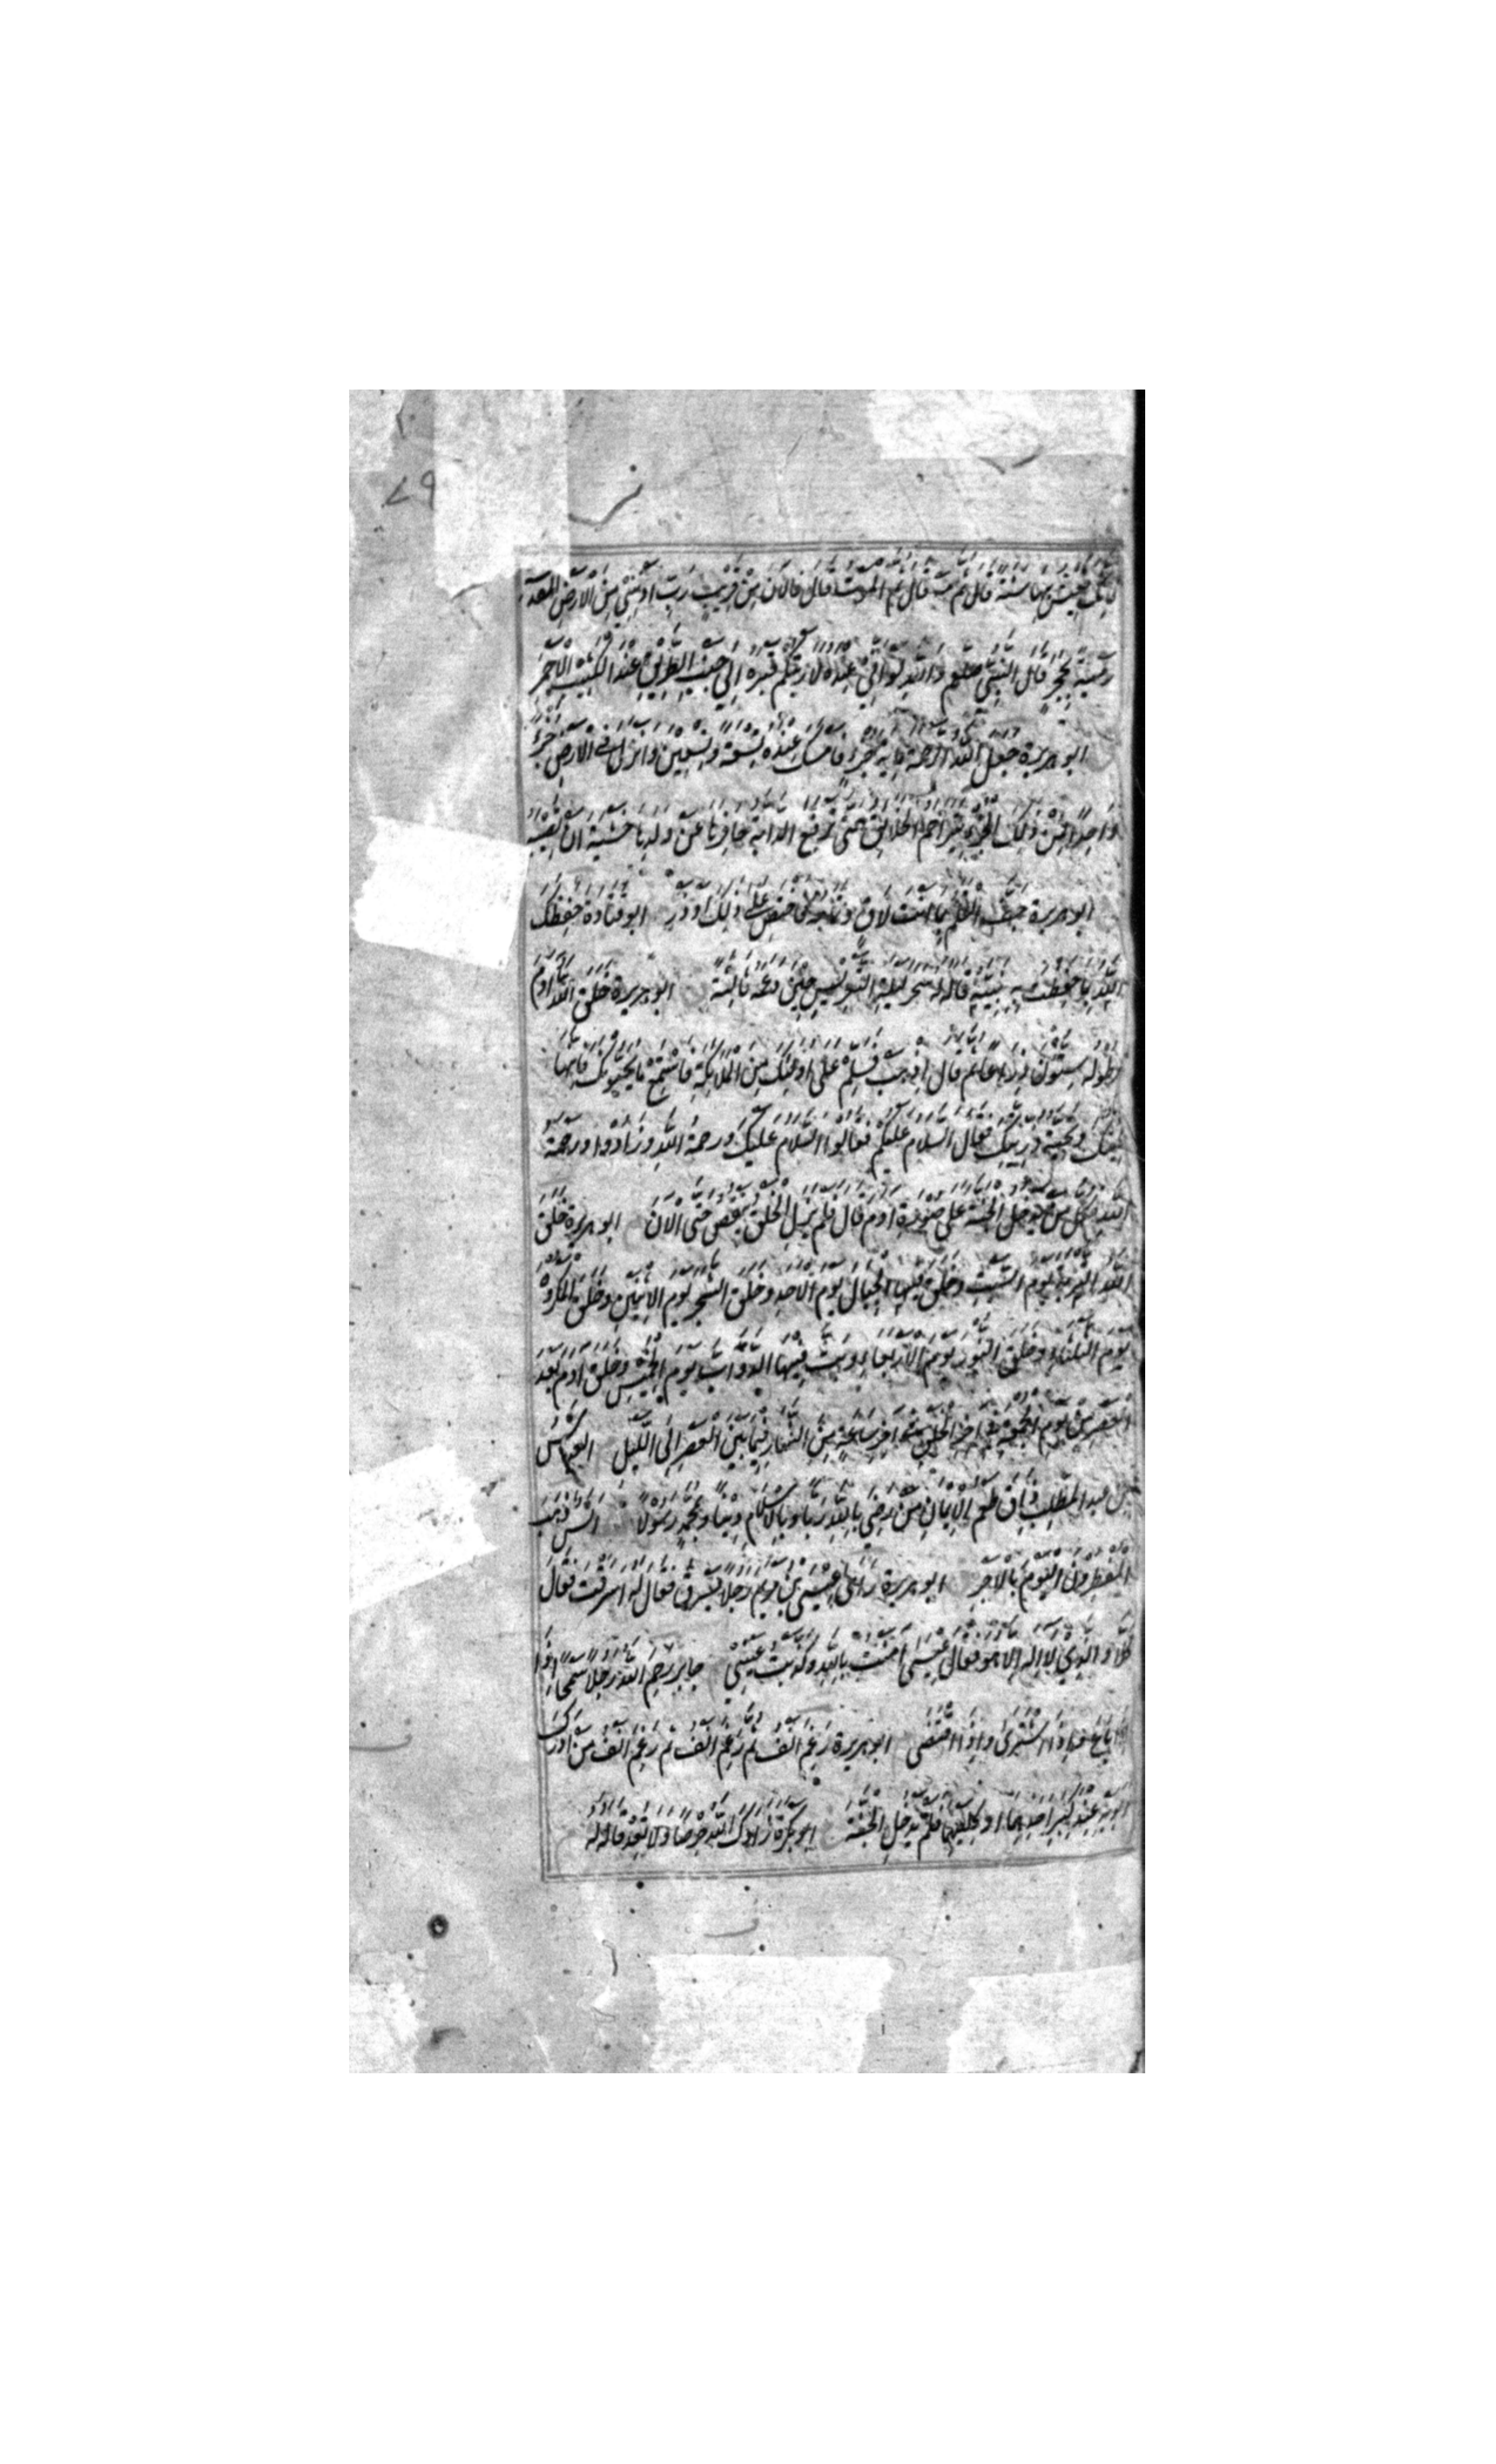 فانك تعيش بها سنة قال ثم مه قال ثم الموت قال فالآن من قريب رب ادنني من الارض المقدسة
رمية بحجر قال النبي صلعم والله لو اني عنده لاريتكم قبره الى جنب الطريق عند الكثيب الاحمر
ابو هريرة جعل الله الرحمة ماية جزء فامسك عنده تسعة وتسعين وانزل في الارض جزءا
واحدا فمن ذلك الجزء يتراحم الخلايق حتى ترفع الدابة حافرها عن ولدها خشية ان تصيبه
ابو هريرة جف القلم بما انت لاق فاختص على ذلك او ذر ابو قتادة حفظك
الله بما حفظت به نبيه قاله له سحر ليلة التعريس حين دعمه ثالثة ابو هريرة خلق الله آدم
وطوله ستون ذراعا ثم قال اذهب فسلم على اولئك من الملائكة فاستمع ما يحيونك فانها
تحيتك وتحية ذريتك فقال السلام عليكم فقالوا السلام عليك ورحمة الله وزادوه ورحمة
الله فكل من يدخل الجنة على صورة آدم قال فلم يزل الخلق ينقص حتى الآن ابو هريرة خلق
الله التربة يوم السبت وخلق فيها الجبال يوم الاحد وخلق الشجر يوم الاثنين وخلق المكروه
يوم الثلثاء وخلق النور يوم الاربعاء وبث فيها الدواب يوم الخميس وخلق آدم بعد
العصر من يوم الجمعة في آخر الخلق في آخر ساعة من النهار فيما بين العصر الى الليل العباس
بن عبد المطلب ذاق طعم الايمان من رضي بالله ربا وبالاسلام دينا وبمحمد رسولا انس ذهب
المفطرون اليوم بالاجر ابو هريرة راى عيسى بن مريم رجلا يسرق فقال له اسرقت فقال
كلا والذي لا اله الا هو فقال عيسى امنت بالله وكذبت عيني جابر رحم الله رجلا سمحا اذا
باع واذا اشترى واذا اقتضى ابو هريرة رغم انف ثم رغم انف ثم رغم انف من ادرك
ابويه عند الكبر احدهما او كليهما فلم يدخل الجنة ابو بكرة زادك الله حرصا ولا تعد قاله له